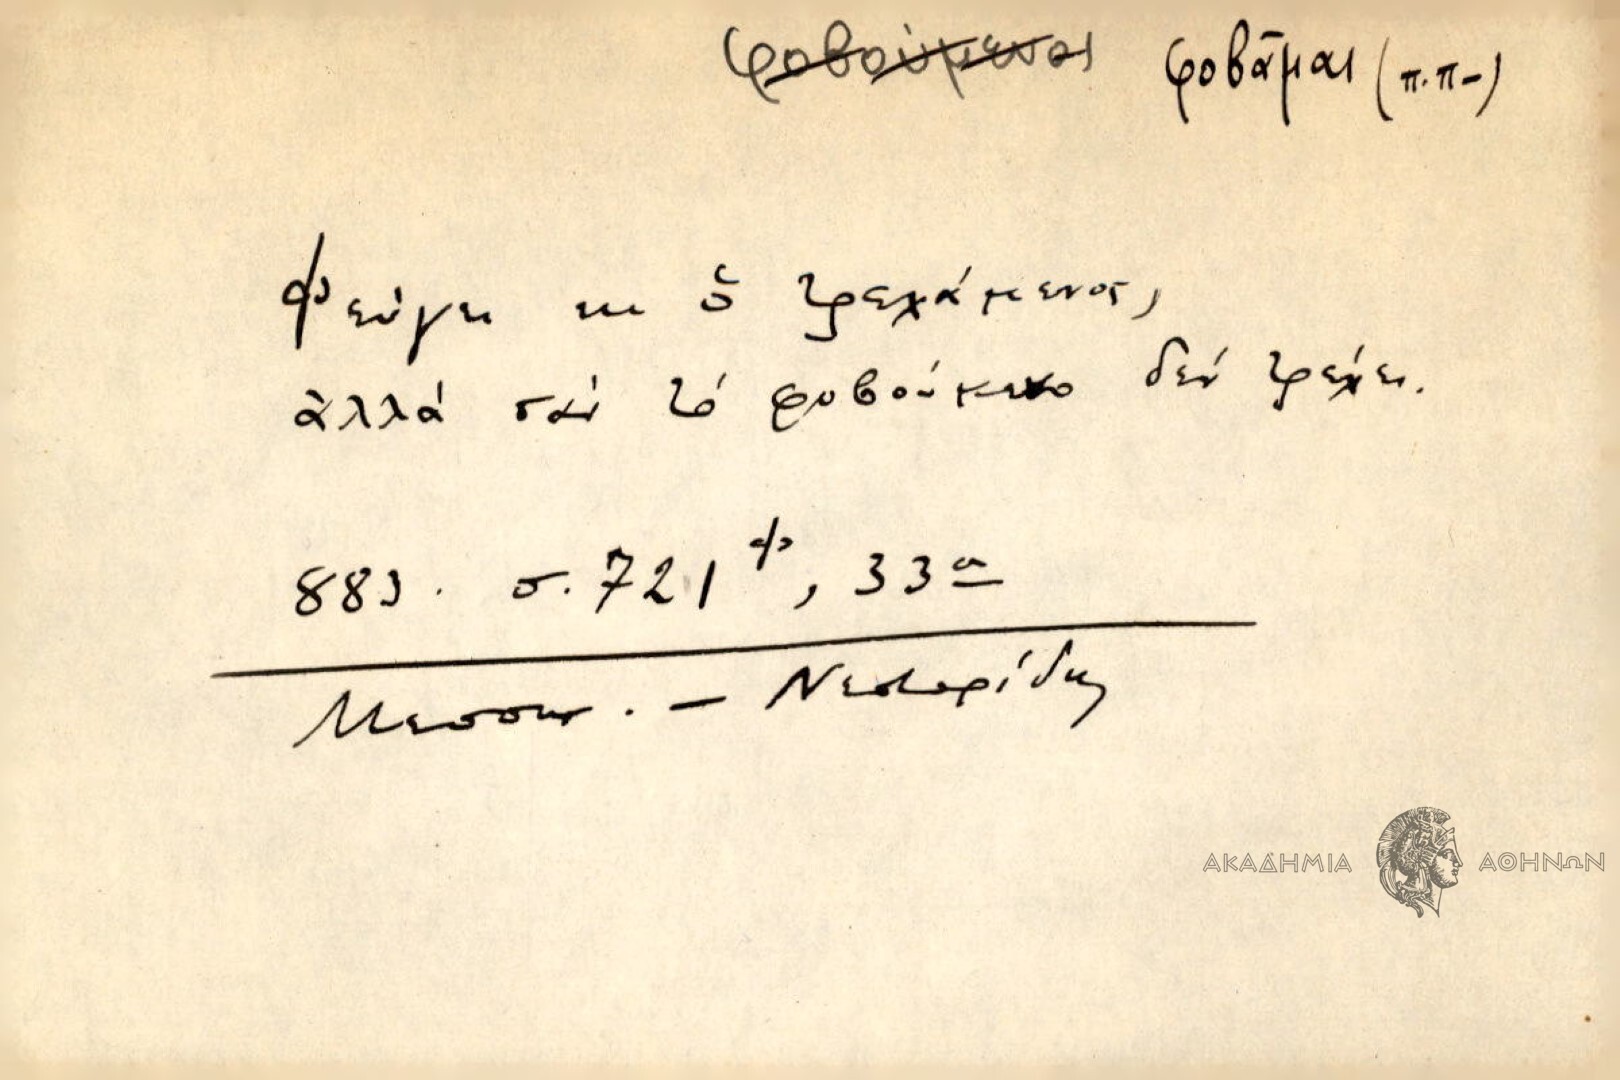 φοβούμενοι φοβᾶμαι (π.π-)
Φεύγει κι ὁ τρεχάμενος,
ἀλλά σάν τό φοβούμενο δέν τρέχει.
883. σ. 721 φ, 33α
Μεσσην. - Νεστορίδης
ΑΚΑΔΗΜΙΑ ΑΘΗΝΩΝ